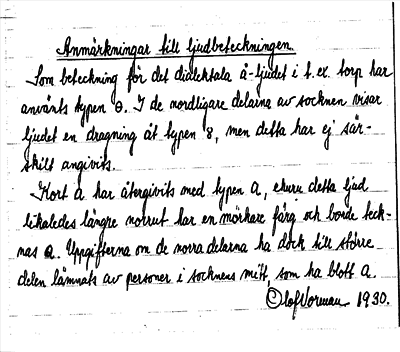 Anmärkningar till ljudbeteckningen.
Som beteckning för det dialektala å-ljudet i t.ex. torp har
använts typen ɵ. I de nordligare delarna av socknen visar
ljudet en dragning åt typen 8, men detta har ej sär-
skilt angivits.
Kort a har återgivits med typen a, ehuru detta ljud
likaledes längre norrut har en mörkare färg och borde teck-
nas a. Uppgifterna om de norra delarna ha dock till större
delen lämnats av personer i socknens mitt, som ha blott a.
Olof Norman 1930.